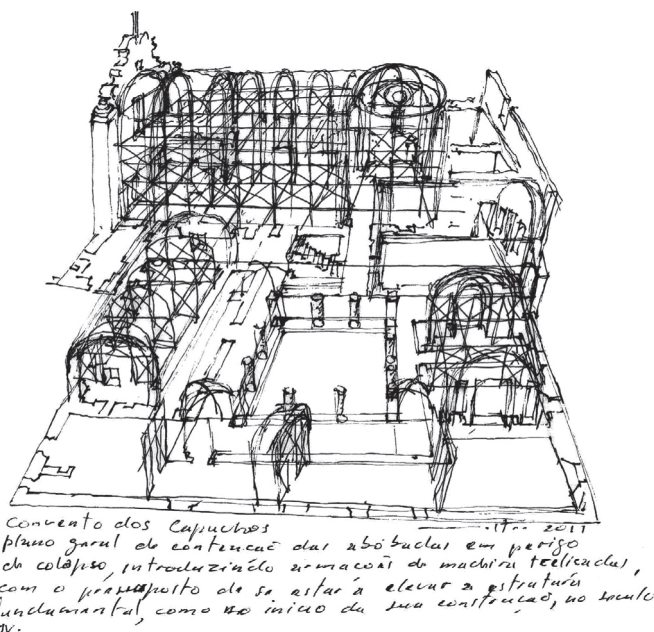 convento dos Capuchos 2011
plano geral de contenção das abóbadas em perigo
de colapso, introduzindo armações de madeira treliçadas,
com o pressuposto de se estar a elevar a estrutura
fundamental, como no início da sua construção, no século
XV.